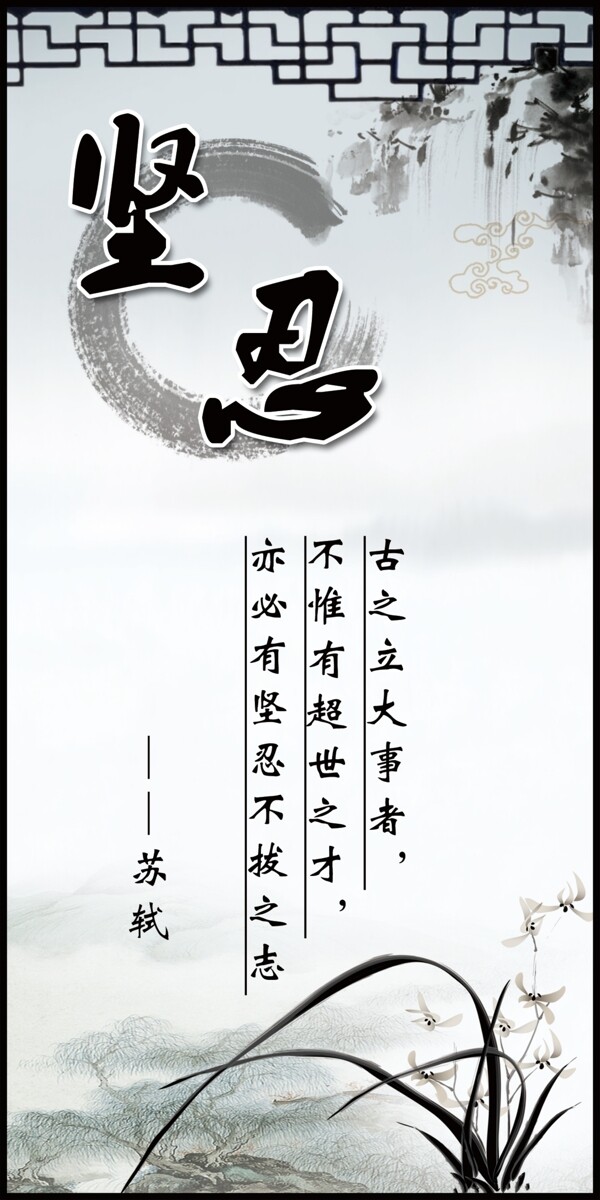 坚忍
古之立大事者，
不惟有超世之才，
亦必有坚忍不拔之志
——苏轼